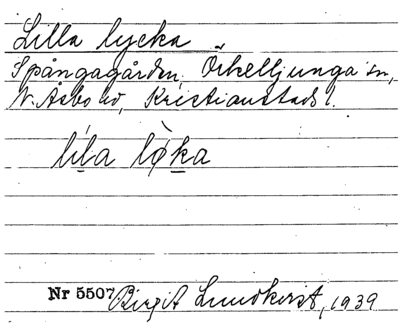 Lilla lycka
Spångagården, Örkelljunga sn,
N. Åsbo hd, Kristianstads l.
lıl̲a lø̀k̲a
Nr 5507 Birgit Lundkvist, 1939